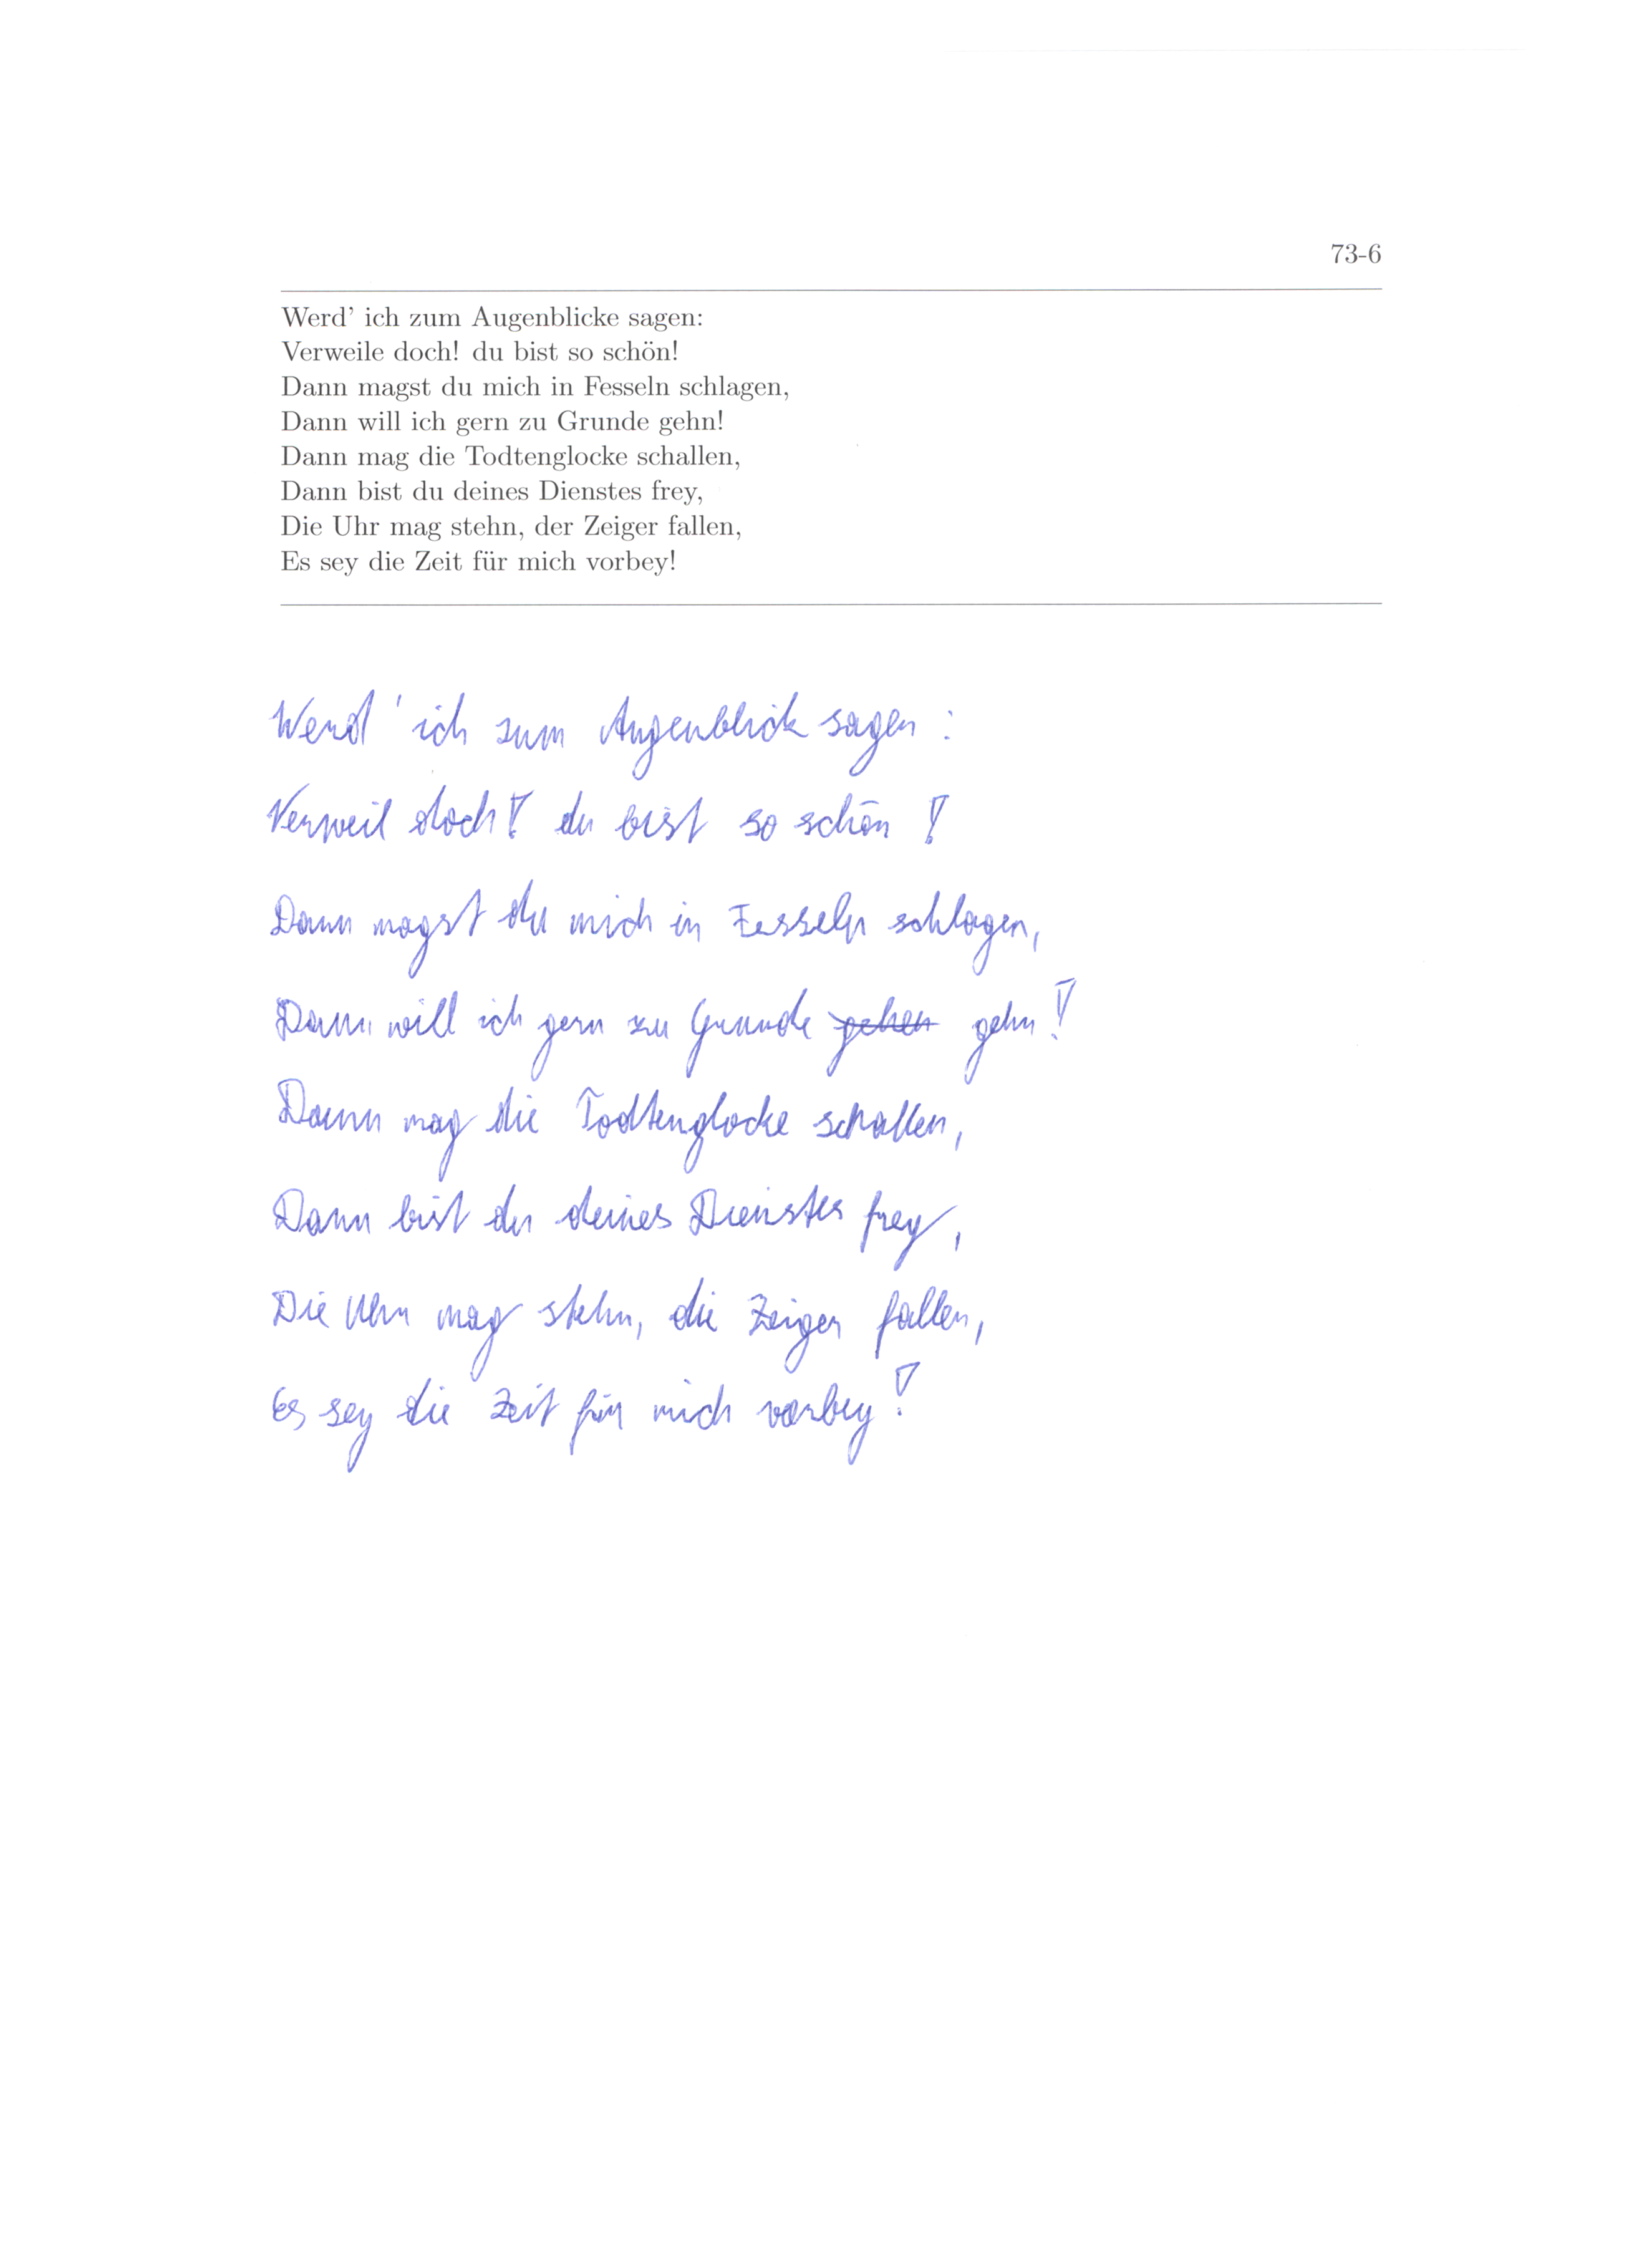 73-6
Werd' ich zum Augenblicke sagen:
Verweile doch! du bist so schön!
Dann magst du mich in Fesseln schlagen,
Dann will ich gern zu Grunde gehn!
Dann mag die Todtenglocke schallen,
Dann bist du deines Dienstes frey,
Die Uhr mag stehn, der Zeiger fallen,
Es sey die Zeit für mich vorbey!
Werd' ich zum Augenblick sagen:
Verweil doch! du bist so schön!
Dann magst du mich in Fesseln schlagen,
Dann will ich gern zu Grunde gehen gehn!
Dann mag die Todtenglocke schallen,
Dann bist du deines Dienstes frey,
Die Uhr mag stehn, die Zeiger fallen,
Es sey die Zeit für mich vorbey!